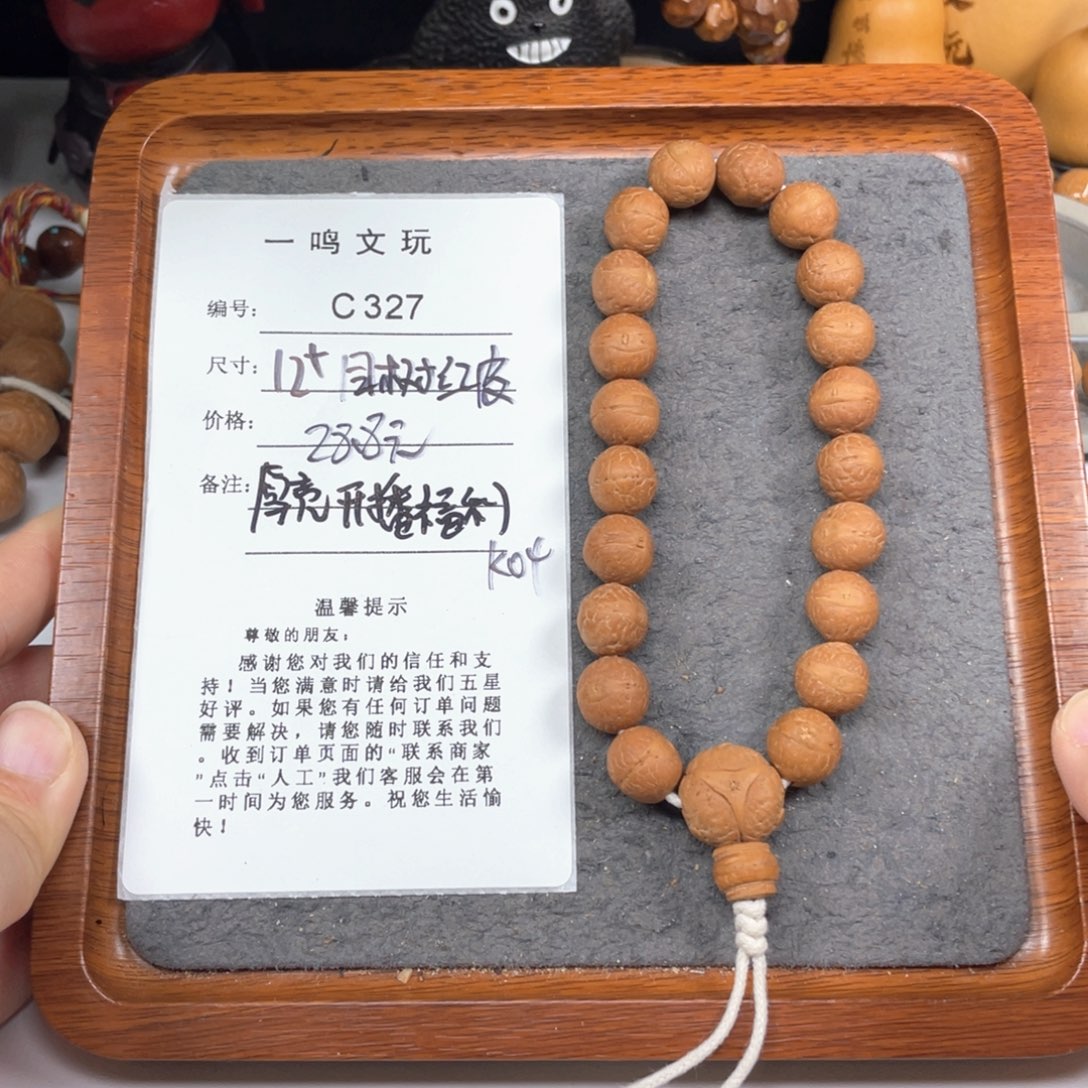 一鸣文玩
编号: C327
尺寸: 12+ 红皮
价格: 288元
备注:
K04
温馨提示
尊敬的朋友:
感谢您对我们的信任和支
持!当您满意时请给我们五星
好评。如果您有任何订单问题
需要解决,请您随时联系我们
。收到订单页面的“联系商家
”点击“人工”我们客服会在第
一时间为您服务。祝您生活愉
快!